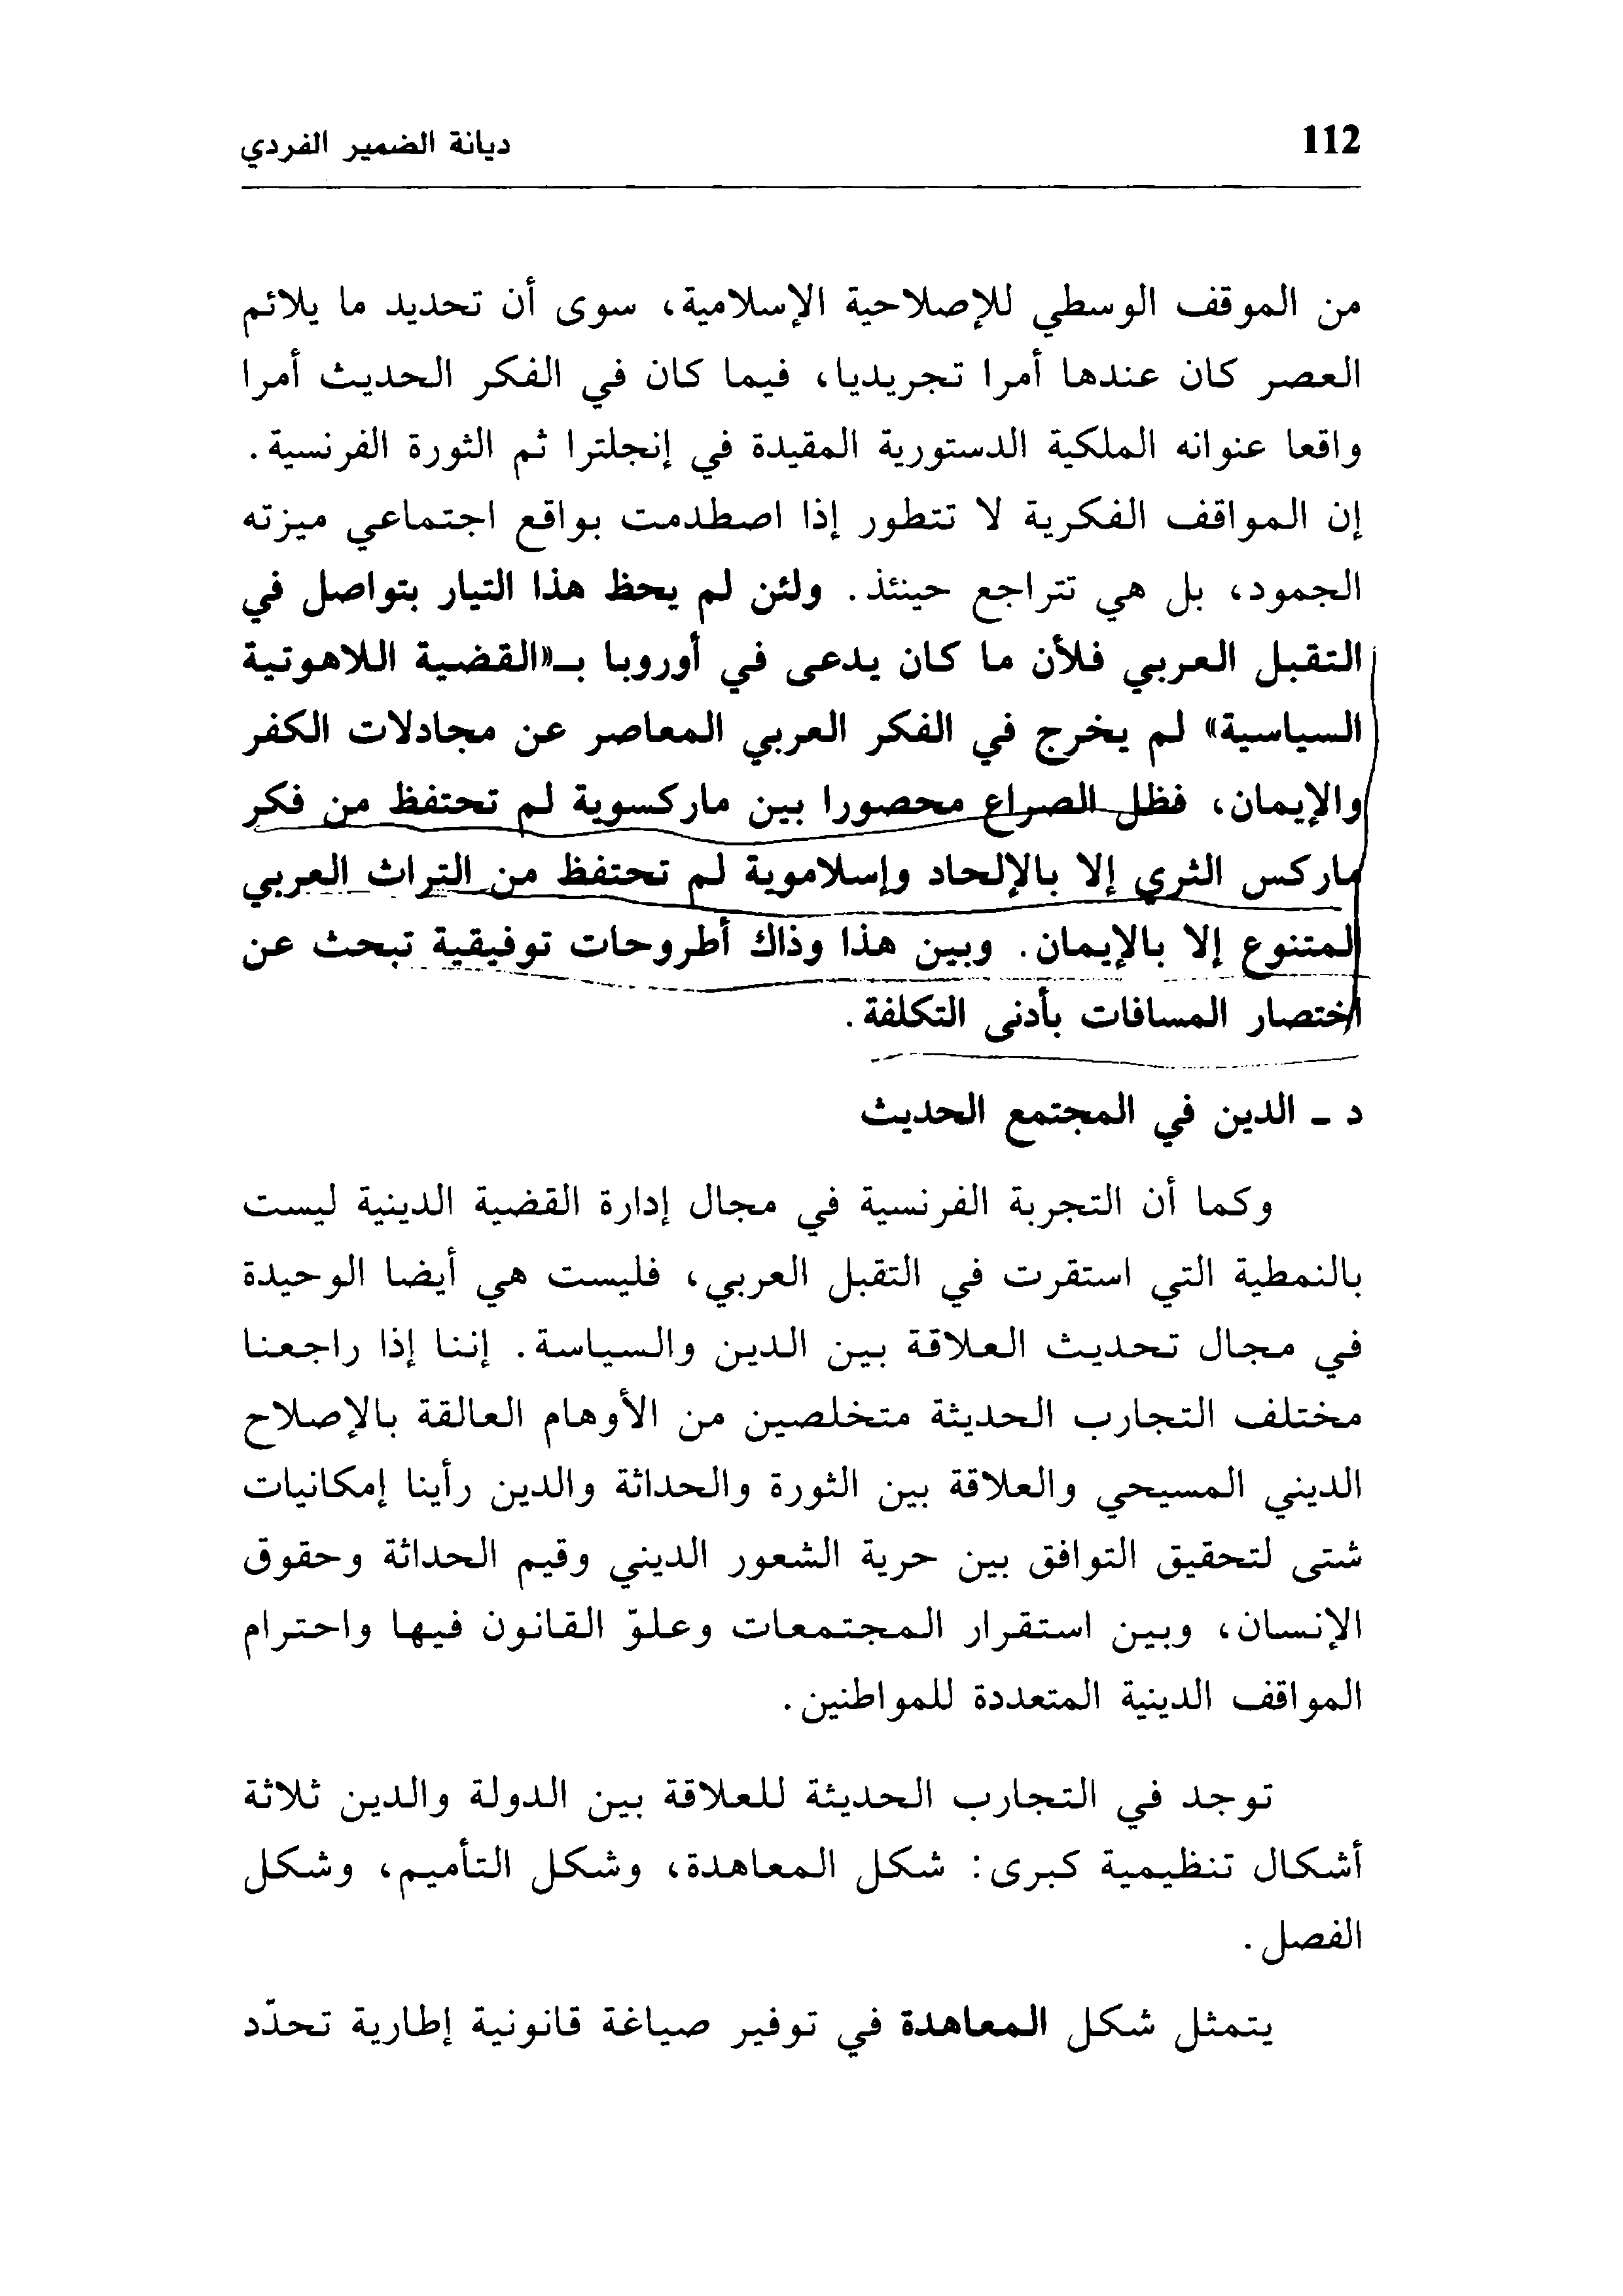 112
ديانة الضمير الفردي
من الموقف الوسطي للإصلاحية الإسلامية، سوى أن تحديد ما يلائم
العصر كان عندها أمرا تجريديا، فيما كان في الفكر الحديث أمرا
واقعا عنوانه الملكية الدستورية المقيدة في إنجلترا ثم الثورة الفرنسية.
إن المواقف الفكرية لا تتطور إذا اصطدمت بواقع اجتماعي ميزته
الجمود، بل هي تتراجع حينئذ. ولئن لم يحظ هذا التيار بتواصل في
التقبل العربي فلأن ما كان يدعى في أوروبا بـ«القضية اللاهوتية
السياسية» لم يخرج في الفكر العربي المعاصر عن مجادلات الكفر
والإيمان، فظل الصراع محصورا بين ماركسوية لم تحتفظ من فكر
ماركس الثري إلا بالإلحاد وإسلاموية لم تحتفظ من التراث العربي
المتنوع إلا بالإيمان. وبين هذا وذاك أطروحات توفيقية تبحث عن
اختصار المسافات بأدنى التكلفة.
د - الدين في المجتمع الحديث
وكما أن التجربة الفرنسية في مجال إدارة القضية الدينية ليست
بالنمطية التي استقرت في التقبل العربي، فليست هي أيضا الوحيدة
في مجال تحديث العلاقة بين الدين والسياسة. إننا إذا راجعنا
مختلف التجارب الحديثة متخلصين من الأوهام العالقة بالإصلاح
الديني المسيحي والعلاقة بين الثورة والحداثة والدين رأينا إمكانيات
شتى لتحقيق التوافق بين حرية الشعور الديني وقيم الحداثة وحقوق
الإنسان، وبين استقرار المجتمعات وعلوّ القانون فيها واحترام
المواقف الدينية المتعددة للمواطنين.
توجد في التجارب الحديثة للعلاقة بين الدولة والدين ثلاثة
أشكال تنظيمية كبرى: شكل المعاهدة، وشكل التأميم، وشكل
الفصل.
يتمثل شكل المعاهدة في توفير صياغة قانونية إطارية تحدّد